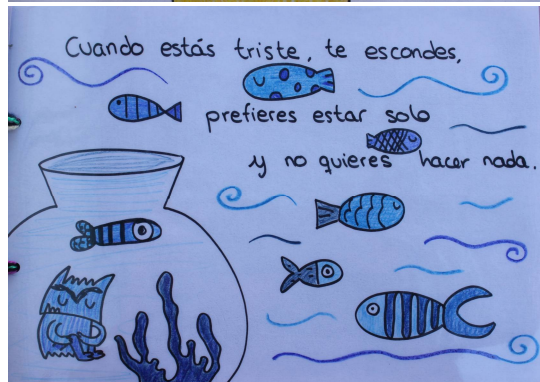 Cuando estás triste, te escondes,
prefieres estar solo
y no quieres hacer nada.